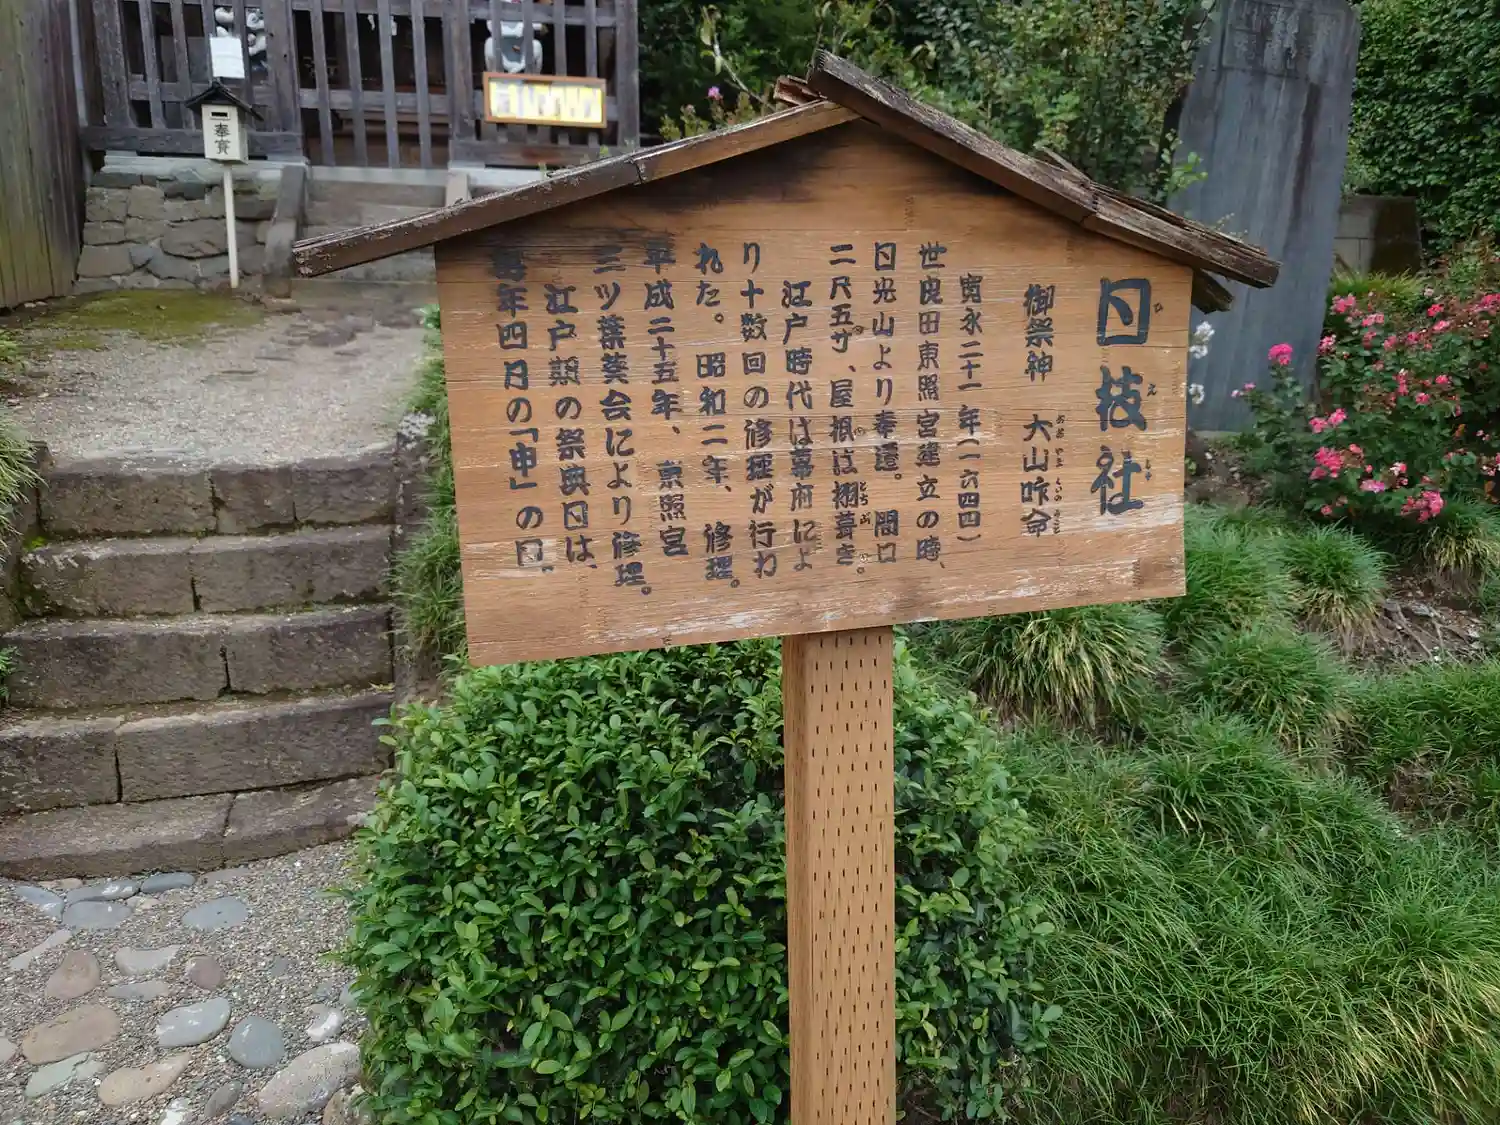 日枝社
御祭神 大山咋命
寛永二十一年(一六四四)
世良田東照宮建立の時、
日光山より奉遷。間口
二尺五寸、屋根は栩葺き。
江戸時代は幕府によ
り十数回の修理が行わ
れた。昭和二年、修理。
平成二十五年、東照宮
三ツ葉葵会により修理。
江戸期の祭典日は、
毎年四月の「申」の日。
奉賽